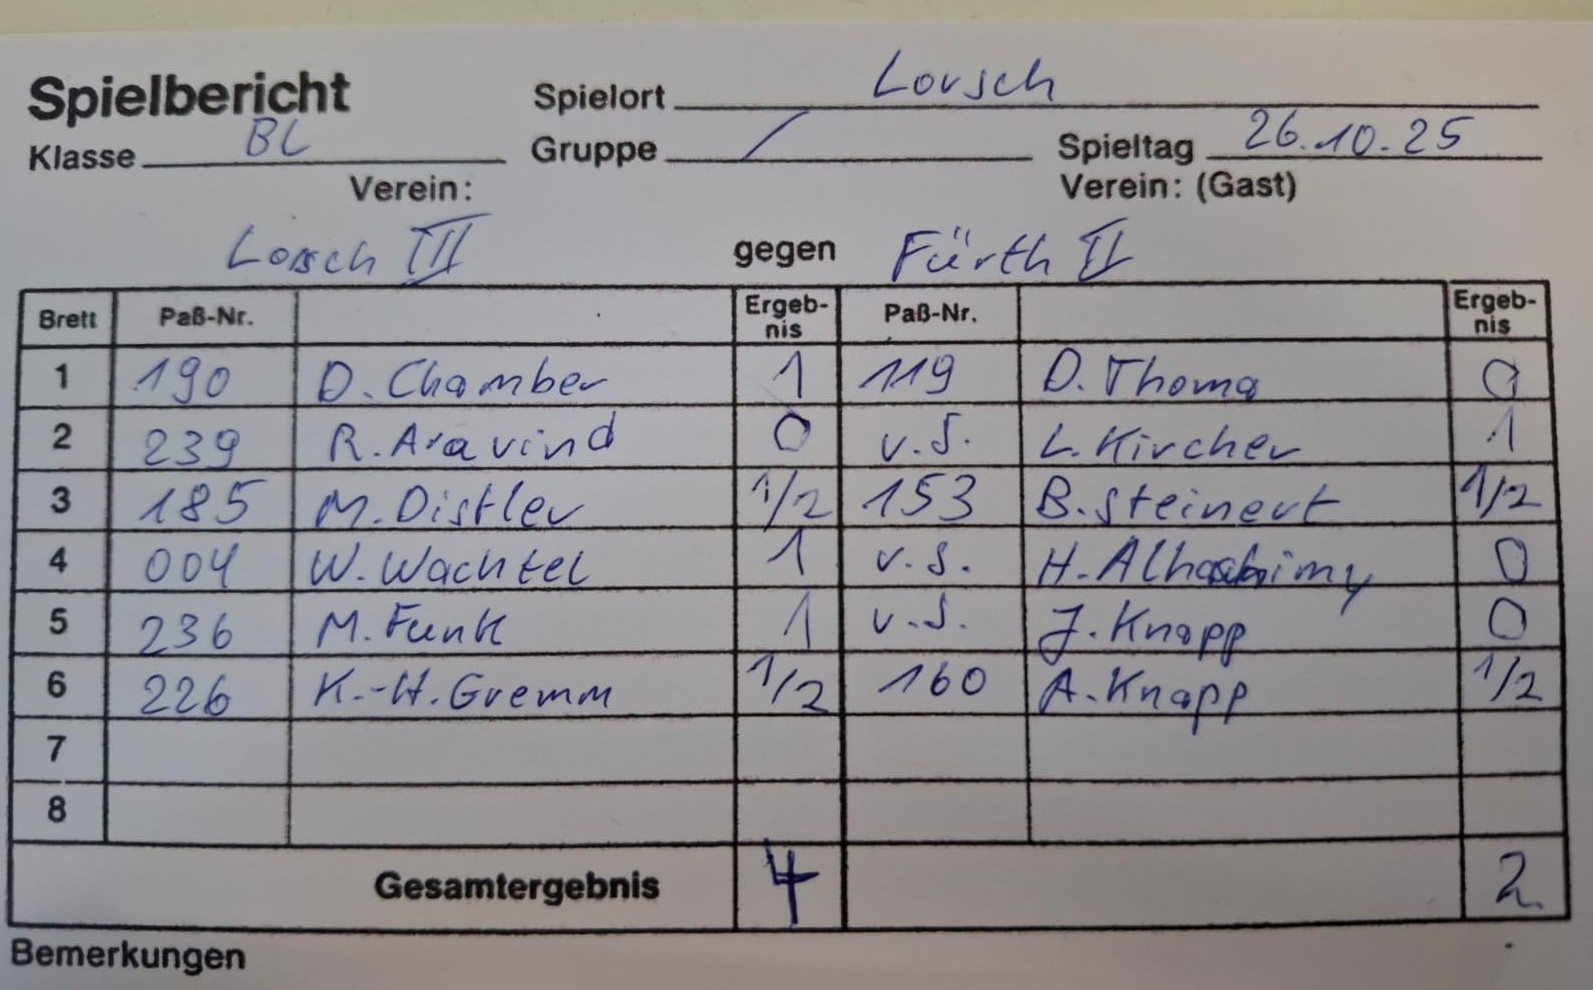 Spielbericht Spielort Lorsch
Klasse BL Gruppe / Spieltag 26.10.25
Verein: Verein: (Gast)
Lorsch III gegen Fürth II
Brett Paß-Nr. Ergeb-nis Paß-Nr. Ergeb-nis
1 190 D. Chamber 1 119 D. Thoma 0
2 239 R. Aravind 0 v.S. L. Kircher 1
3 185 M. Distler 1/2 153 B. Steinert 1/2
4 004 W. Wachtel 1 v.S. H. 0
5 236 M. Funk 1 v.S. J. Knapp 0
6 226 K.-H. Gremm 1/2 160 A. Knapp 1/2
7
8
Gesamtergebnis 4 2
Bemerkungen